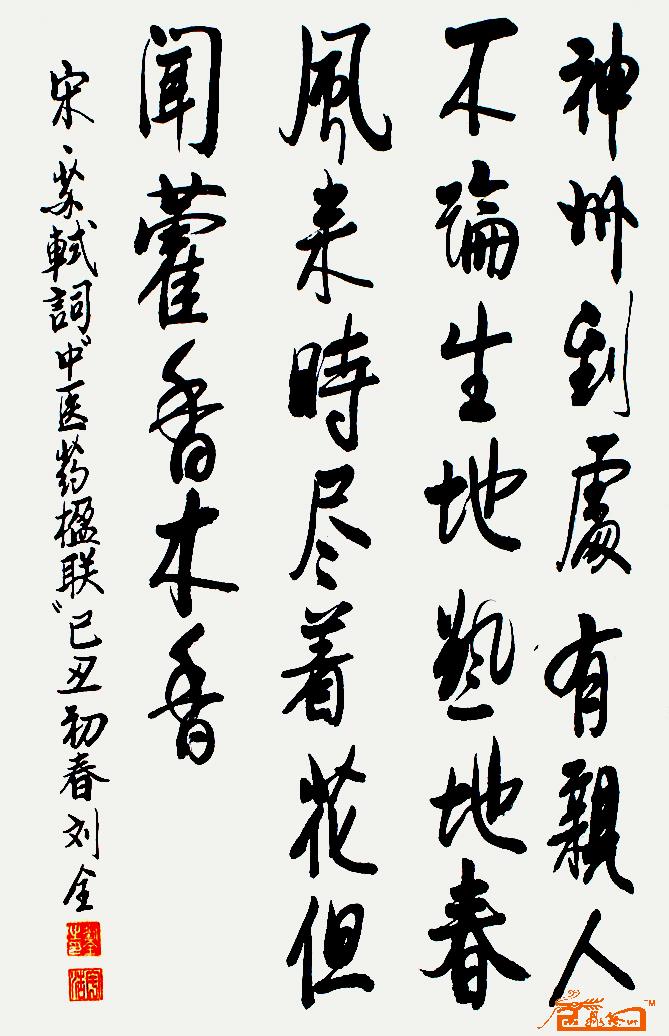 神州到處有親人
不論生地熟地春
風来時尽着花但
聞藿香木香
宋、蘇軾詞“中医药楹联”己丑初春刘全